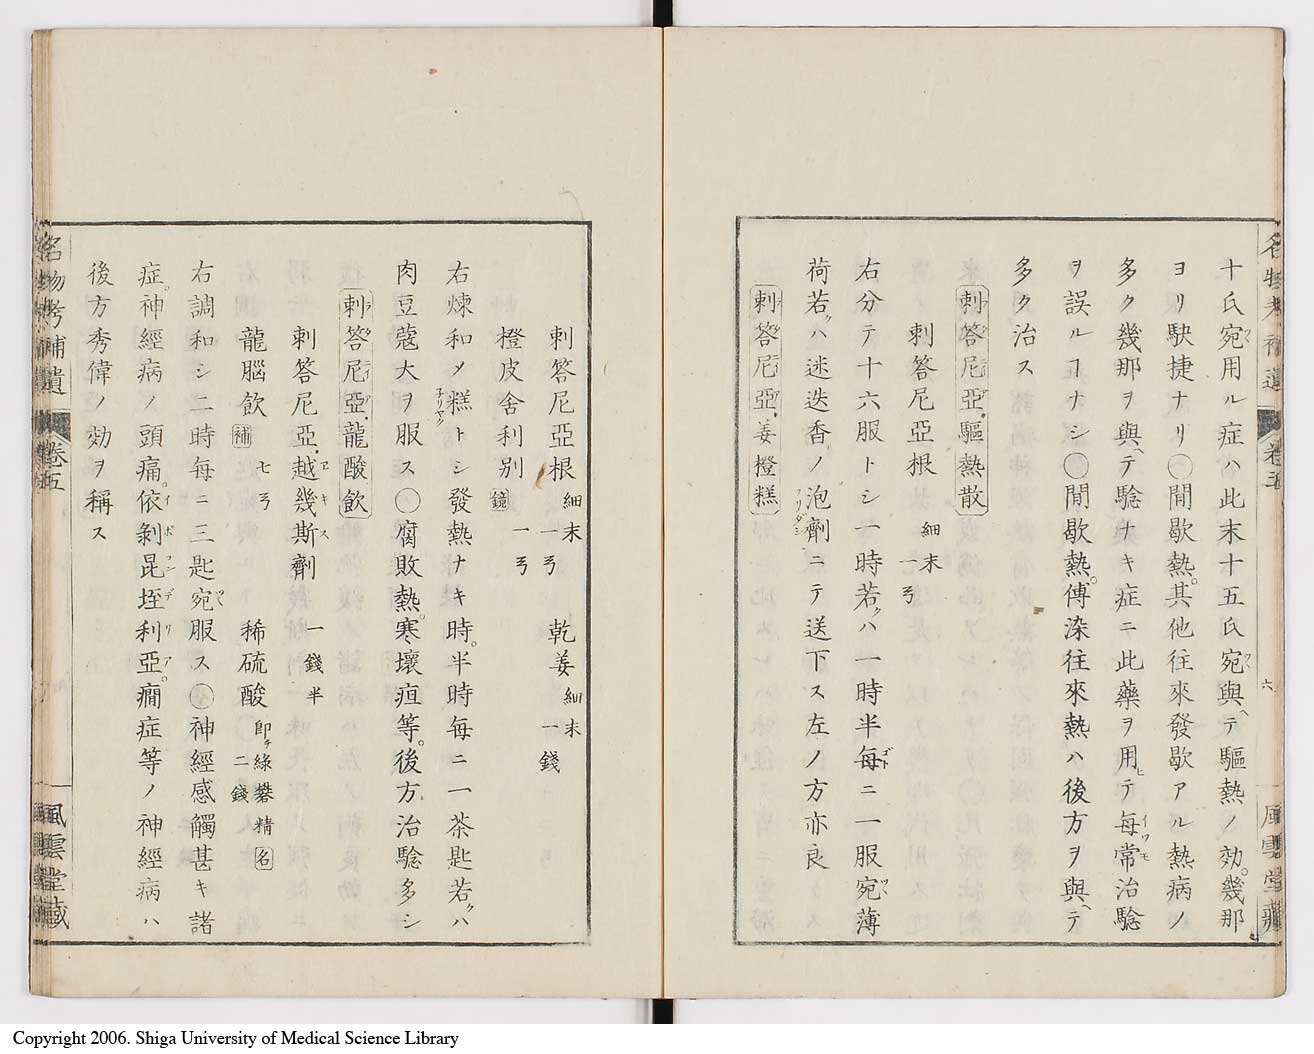 十氏宛用ル症ハ此末十五氏宛與ヘテ驅熱ノ効。幾那
ヨリ駃捷ナリ○間歇熱。其他往來發歇アル熱病ノ
多ク幾那ヲ與ヘテ騐ナキ症ニ此藥ヲ用ヒテ每常治騐
ヲ誤ルヿナシ○間歇熱。傳染往來熱ハ後方ヲ與ヘテ
多ク治ス
刺答尼亞.驅熱散
刺答尼亞根 細末 一ヲ
右分テ十六服トシ一時若クハ一時半每ニ一服宛薄
荷若クハ迷迭香ノ泡劑ニテ送下ス左ノ方亦良
刺答尼亞.姜橙糕
刺答尼亞根 細末 一ヲ 乾姜 細末 一錢
橙皮舍利別 鏡 一ヲ
右煉和メ糕トシ發熱ナキ時。半時每ニ一茶匙若クハ
肉豆蔻大ヲ服ス○腐敗熱。寒壞疽等。後方治騐多シ
刺答尼亞.龍酸飲
刺答尼亞.越幾斯劑 一錢半
龍腦飲 補 七ヲ 稀硫酸 即チ綠礬精 名 二錢
右調和シ二時每ニ三匙宛服ス○神經感觸甚キ諸
症。神經病ノ頭痛。依剝昆垤利亞。癇症等ノ神經病ハ
後方秀偉ノ効ヲ稱ス
名物考補遺 卷五 六 風雲堂藏
Copyright 2006. Shiga University of Medical Science Library